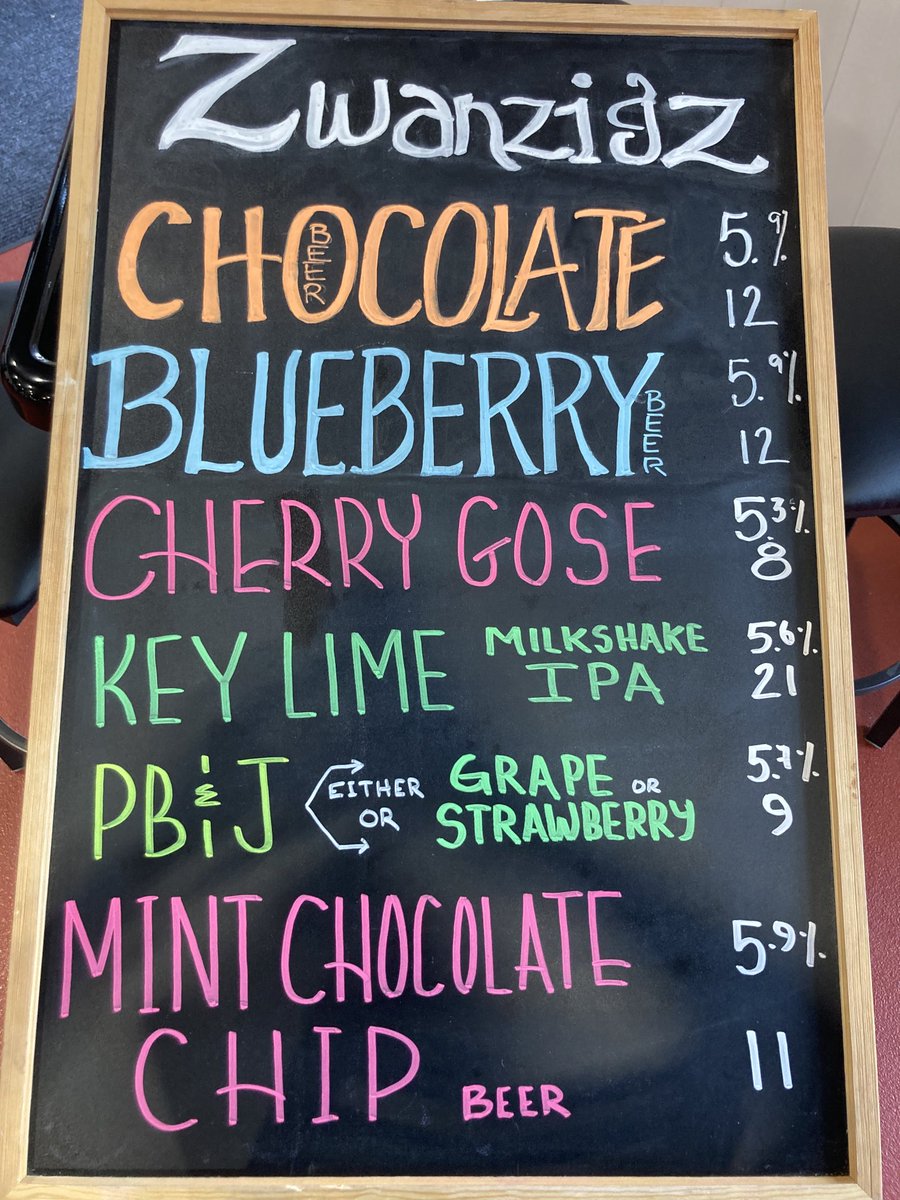 Zwanzigz
CHOCOLATE BEER 5.9%
12
BLUEBERRY BEER 5.9%
12
CHERRY GOSE 5.3%
8
KEY LIME MILKSHAKE IPA 5.6%
21
PB&J EITHER OR GRAPE OR STRAWBERRY 5.7%
9
MINT CHOCOLATE 5.9%
CHIP BEER 11